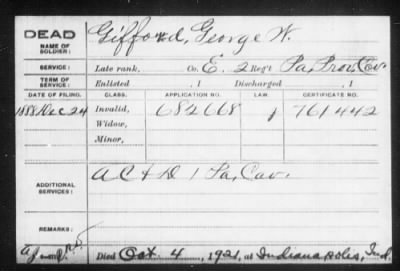 DEAD
NAME OF SOLDIER: Gifford, George W.
SERVICE: Late rank, Co. E, 2 Reg't Pa. Prov. Cav.
TERM OF SERVICE: Enlisted , 1 Discharged , 1
DATE OF FILING. CLASS. APPLICATION NO. LAW. CERTIFICATE NO.
1888 Dec 24 Invalid, 682668 761442
Widow,
Minor,
ADDITIONAL SERVICES: A C & D 1 Pa. Cav.
REMARKS:
Died Oct. 4, 1921, at Indianapolis, Ind.